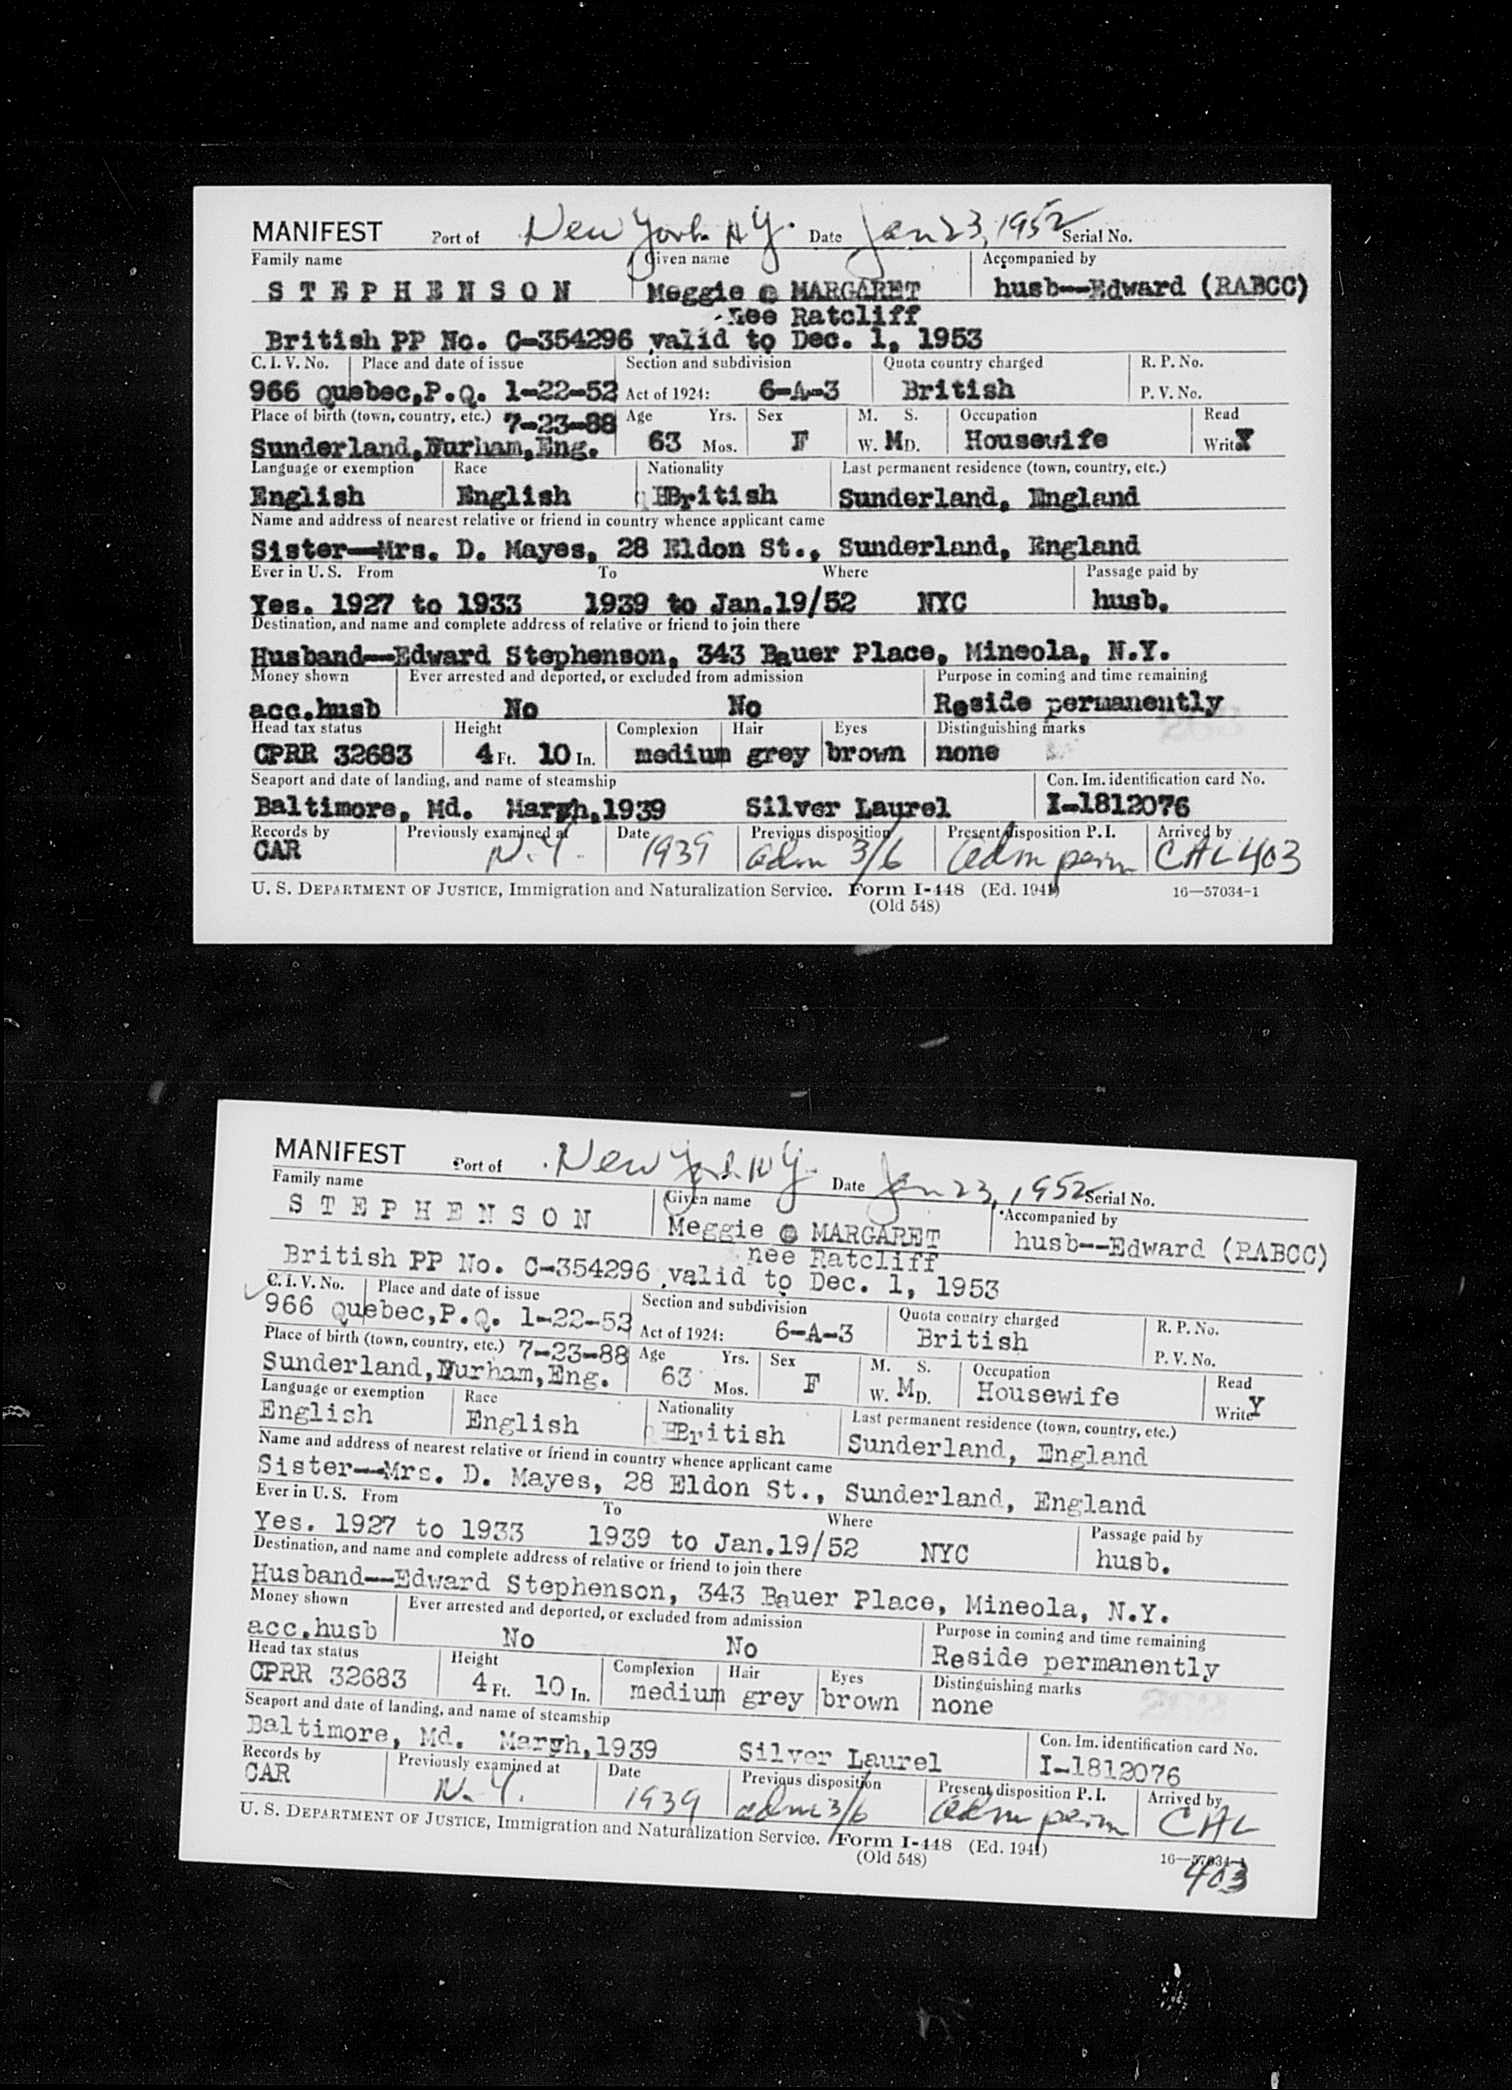 MANIFEST Port of New York NY. Date Jan 23, 1952 Serial No.
Family name Given name Accompanied by
STEPHENSON Meggie @ MARGARET husb--Edward (RABCC)
nee Ratcliff
British PP No. C-354296 valid to Dec. 1, 1953
C. I. V. No. Place and date of issue Section and subdivision Quota country charged R. P. No.
966 Quebec,P.Q. 1-22-52 Act of 1924: 6-A-3 British P. V. No.
Place of birth (town, country, etc.) 7-23-88 Age Yrs. Sex M. S. Occupation Read
Sunderland,Durham,Eng. 63 Mos. F W. MD. Housewife Write Y
Language or exemption Race Nationality Last permanent residence (town, country, etc.)
English English British Sunderland, England
Name and address of nearest relative or friend in country whence applicant came
Sister--Mrs. D. Mayes, 28 Eldon St., Sunderland, England
Ever in U. S. From To Where Passage paid by
Yes. 1927 to 1933 1939 to Jan.19/52 NYC husb.
Destination, and name and complete address of relative or friend to join there
Husband--Edward Stephenson, 343 Bauer Place, Mineola, N.Y.
Money shown Ever arrested and deported, or excluded from admission Purpose in coming and time remaining
acc.husb No No Reside permanently
Head tax status Height Complexion Hair Eyes Distinguishing marks
CPRR 32683 4 Ft. 10 In. medium grey brown none
Seaport and date of landing, and name of steamship Con. Im. identification card No.
Baltimore, Md. March,1939 Silver Laurel I-1812076
Records by Previously examined at Date Previous disposition Present disposition P. I. Arrived by
CAR N.Y. 1939 adm 3/6 adm perm CAL 403
U. S. DEPARTMENT OF JUSTICE, Immigration and Naturalization Service. Form I-448 (Ed. 1941) 16—57034-1
(Old 548)
MANIFEST Port of New York NY. Date Jan 23, 1952 Serial No.
Family name Given name Accompanied by
STEPHENSON Meggie @ MARGARET husb--Edward (RABCC)
nee Ratcliff
British PP No. C-354296 valid to Dec. 1, 1953
C. I. V. No. Place and date of issue Section and subdivision Quota country charged R. P. No.
966 Quebec,P.Q. 1-22-52 Act of 1924: 6-A-3 British P. V. No.
Place of birth (town, country, etc.) 7-23-88 Age Yrs. Sex M. S. Occupation Read
Sunderland,Durham,Eng. 63 Mos. F W. MD. Housewife Write Y
Language or exemption Race Nationality Last permanent residence (town, country, etc.)
English English British Sunderland, England
Name and address of nearest relative or friend in country whence applicant came
Sister--Mrs. D. Mayes, 28 Eldon St., Sunderland, England
Ever in U. S. From To Where Passage paid by
Yes. 1927 to 1933 1939 to Jan.19/52 NYC husb.
Destination, and name and complete address of relative or friend to join there
Husband--Edward Stephenson, 343 Bauer Place, Mineola, N.Y.
Money shown Ever arrested and deported, or excluded from admission Purpose in coming and time remaining
acc.husb No No Reside permanently
Head tax status Height Complexion Hair Eyes Distinguishing marks
CPRR 32683 4 Ft. 10 In. medium grey brown none
Seaport and date of landing, and name of steamship Con. Im. identification card No.
Baltimore, Md. March,1939 Silver Laurel I-1812076
Records by Previously examined at Date Previous disposition Present disposition P. I. Arrived by
CAR N.Y. 1939 adm 3/6 adm perm CAL
U. S. DEPARTMENT OF JUSTICE, Immigration and Naturalization Service. Form I-448 (Ed. 1941) 16—57034-1
(Old 548) 403